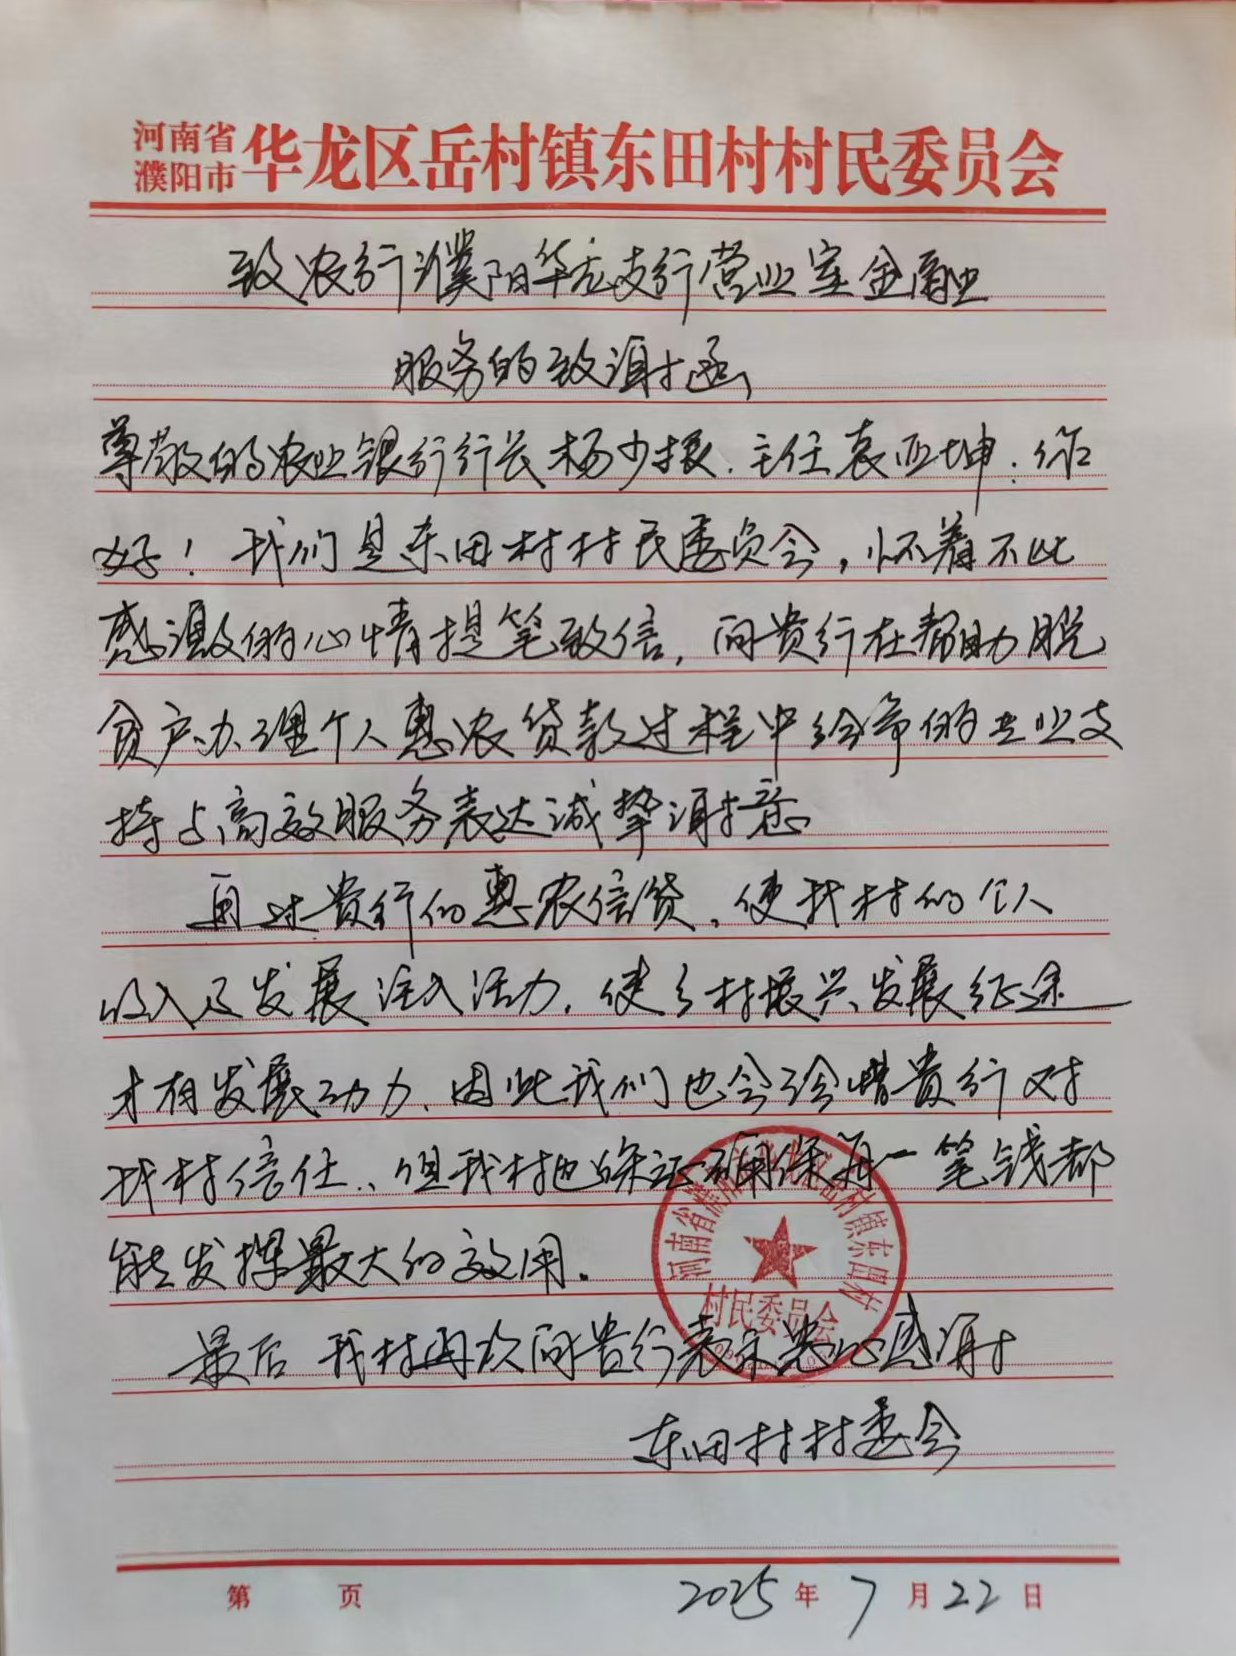 河南省
濮阳市
华龙区岳村镇东田村村民委员会
致农行濮阳华龙支行营业室金融
服务的致谢函
尊敬的农业银行行长杨少振、主任袁亚坤:
好！我们是东田村村民委员会，怀着不比
感激的心情提笔致信，向贵行在帮助脱
贫户办理个人惠农贷款过程中给予的专业支
持与高效服务表达诚挚谢意
贵行的惠农信贷，使我村的个人
收入及发展注入活力，使乡村振兴发展征途
才有发展动力、因此我们也会珍惜贵行对
我村信任、但我村也保证确保每一笔钱都
能发挥最大的效用。
最后 我村再次向贵行表示衷心感谢
东田村村委会
河南省濮阳市华龙区岳村镇东田村
村民委员会
第 页
2025年7月22日